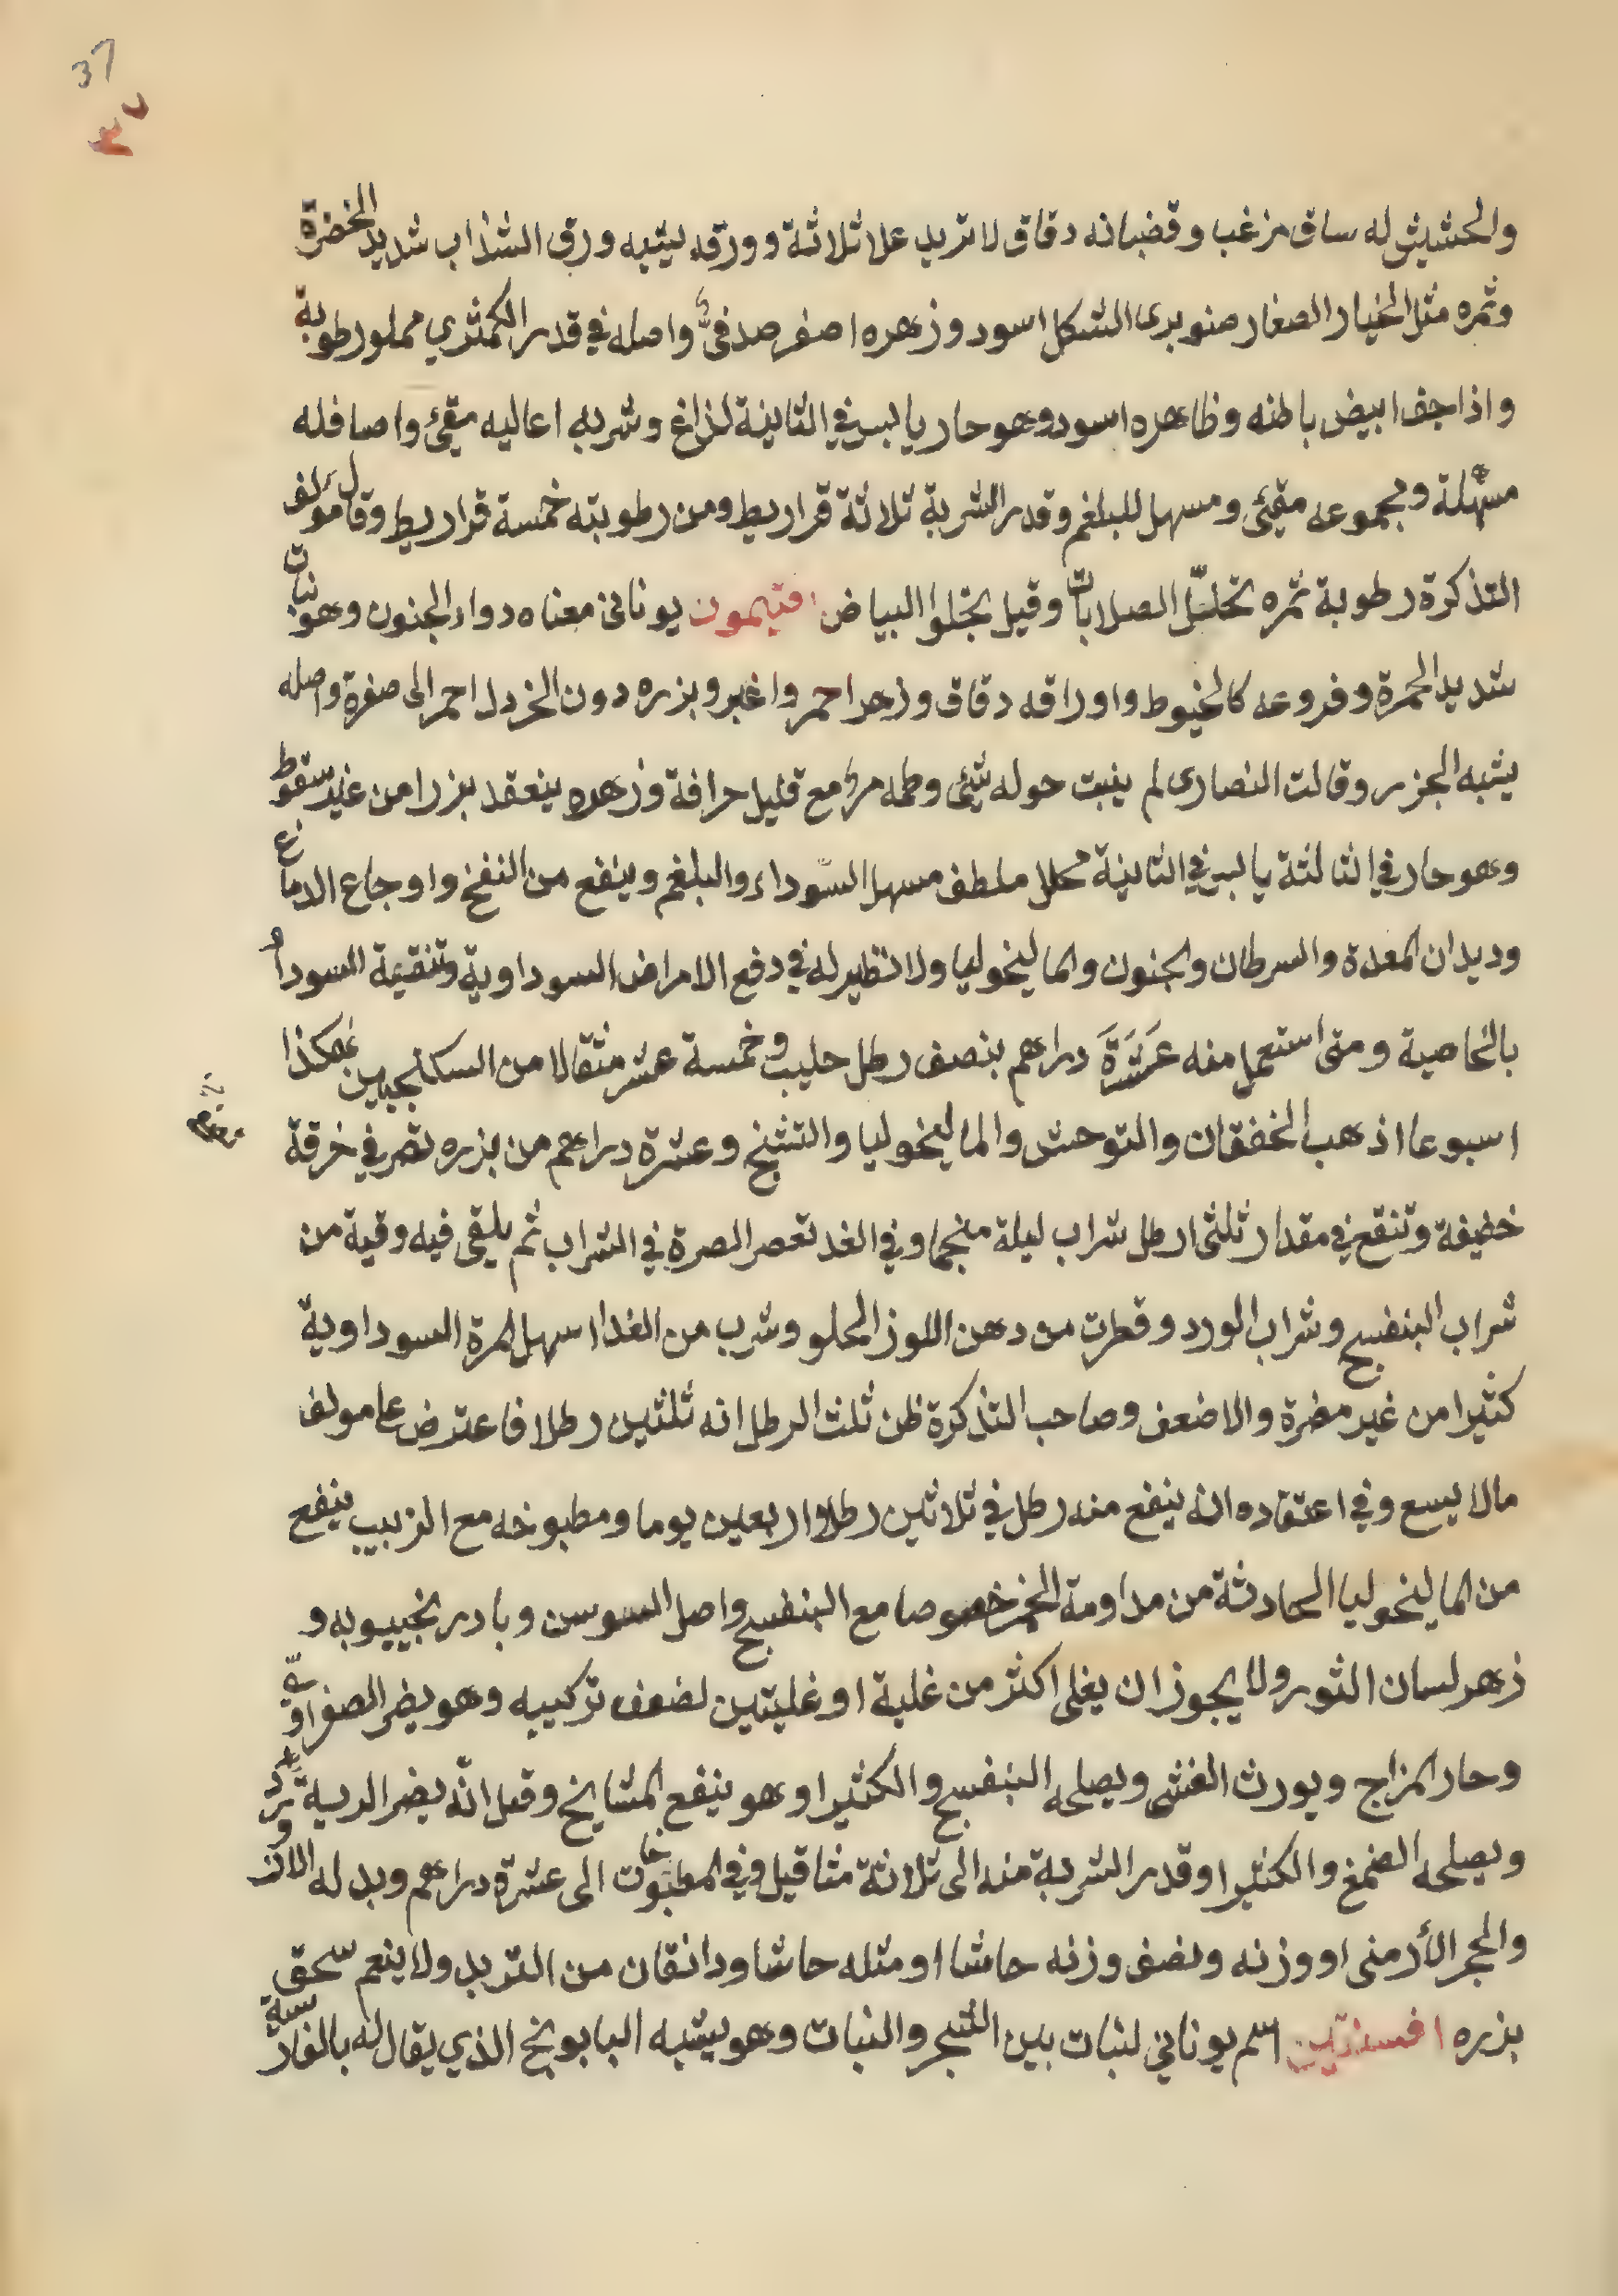 37
٣٧
والحشيش له ساق مزغب وقضبانه دقاق لا تزيد علا ثلاثة وورقه يشبه ورق الشذاب شديد الخضرة
وثمره مثل الخيار الصغار صنوبرى الشكل اسود وزهره اصفر صدفىٌّ واصله في قدر الكمثري مملو رطوبة
واذا جف ابيض باطنه وظاهره اسود وهو حار يابس في الثانية لذاغ وشربه اعاليه مقيئ واصافله
مسّهلة ومجموعه مقيئ ومسهل للبلغم وقدر الشربة ثلاثة قراريط ومن رطوبته خمسة قراريط وقال مولف
التذكرة رطوبة ثمره تحلّل الصلابات وقيل يجلوا البياض افتيمون يونانى معناه دواء الجنون وهو نبات
شديد الحمرة وفروعه كالخيوط واوراقه دقاق وزهر احمر واغبر وبزره دون الخردل احمر الى صفرة واصله
يشبه الجزر وقالت النصارى لم ينبت حوله شئى وطعمه مرٌّ مع قليل حرافة وزهره ينعقد بزرا من غير سقوط
وهو حار في الثالثة يابس في الثانية محلل ملطف مسهل السّوداء والبلغم وينفع من النفخ واوجاع الدماغ
وديدان المعدة والسرطان والجنون والماليخوليا ولا نظير له في دفع الامراض السوداوية وتنقية السوداء
بالخاصية ومتى استعمل منه عَشَرَةَ دراهم بنصف رطل حليب وخمسة عشر مثقالا من السكنجبين هكذا
اسبوعا اذهب الخفقان والتوحش والماليخوليا والتشنج وعشرة دراهم من بزره تصر في خرقة
خفيفة وتنقع في مقدار ثلثى ارطل شراب ليلة منجما وفي الغد تعصر الصرة في الشراب ثم يلقى فيه وقية من
شراب البنفسج وشراب الورد وقطرت من دهن اللوز الحلو وشرب من الغدا اسهل المرة السوداوية
كثيرا من غير مضرة والاضعف وصاحب التذكرة ظن ثلث الرطل انه ثلثين رطلا فاعترض علے مولف
مالا يسع وفي اعتقاده انه ينفع منه رطل في ثلاثين رطلا واربعين يوما ومطبوخه مع الزبيب ينفع
من الماليخوليا الحادثة من مداومة الخمر خصوصا مع البنفسج واصل السوسن وبادرنجبويه و
زهر لسان الثور ولا يجوز ان يغلى اكثر من غلية او غليتين لضعف تركيبه وهو يضر الصفراويّة
وحار المزاج ويورث الغشى ويصلحه البنفسج والكثيرا وهو ينفع المشايخ وقيل انّه يضر الرية
ويصلحه الصمغ والكثيرا وقدر الشربة منه الى ثلاثة مثاقيل وفي المطبوخات الى عشرة دراهم وبدله
والحجر الأرمنى او وزنه ونصف وزنه حاشا او مثله حاشا ودانقان من التربد ولا ينعم سحق
بزره افسنتين اسم يوناني لنبات بين الشجر والنبات وهو يشبه البابونج الذي يقال له بالفارسية